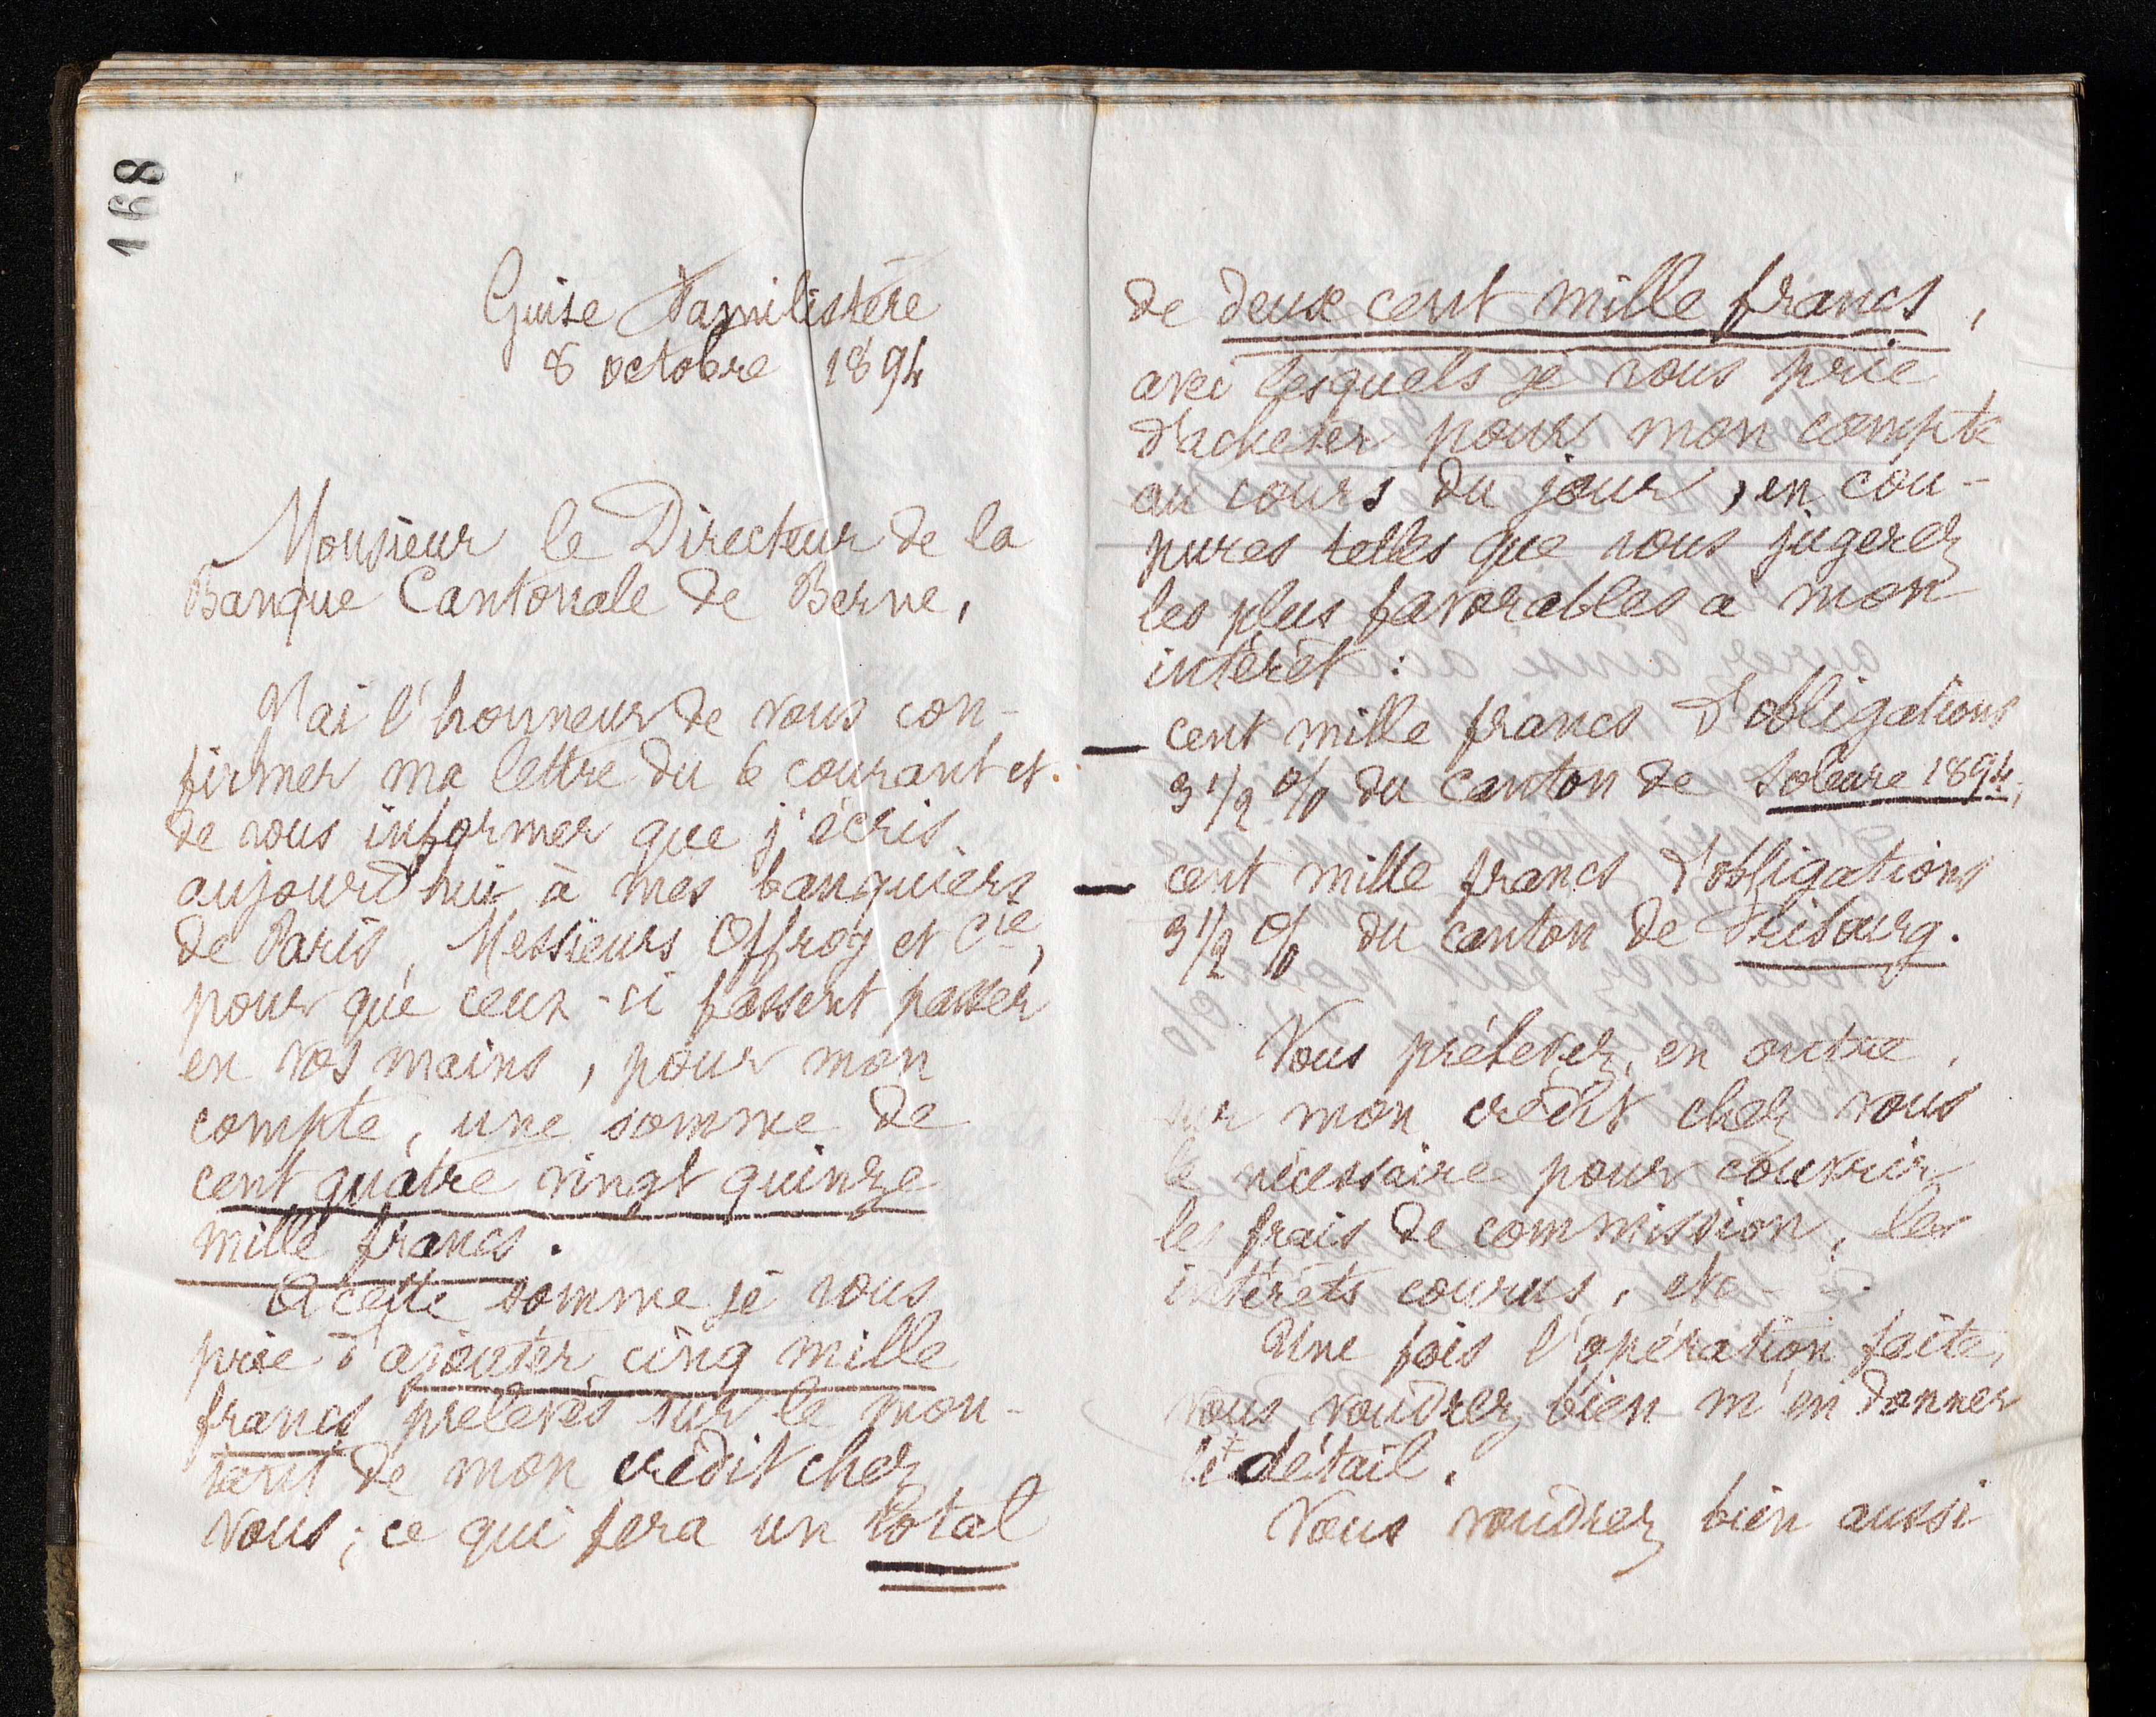 168
Guise Familistère
8 octobre 1894
Monsieur le Directeur de la
Banque Cantonale de Berne,
J'ai l'honneur de vous con-
firmer ma lettre du 6 courant et
de vous informer que j'écris
aujourd'hui à mes banquiers
de Paris, Messieurs Offroy et Cie,
pour que ceux-ci fassent passer
en vos mains, pour mon
compte, une somme de
cent quatre vingt quinze
mille francs.
A cette somme je vous
prie d'ajouter cinq mille
francs prélevés sur le mon-
tant de mon crédit chez
vous; ce qui fera un total
de deux cent mille francs,
avec lesquels je vous prie
d'acheter pour mon compte
au cours du jour, en cou-
pures telles que vous jugerez
les plus favorables à mon
intérêt:
— cent mille francs d'obligations
3 1/2 % du canton de Soleure 1894;
— cent mille francs d'obligations
3 1/2 % du canton de Fribourg.
Vous prélevez, en outre,
sur mon crédit chez vous
le nécessaire pour couvrir
les frais de commission, les
intérêts courus, etc.
Une fois l'opération faite,
vous voudrez bien m'en donner
le détail.
Vous voudrez bien aussi